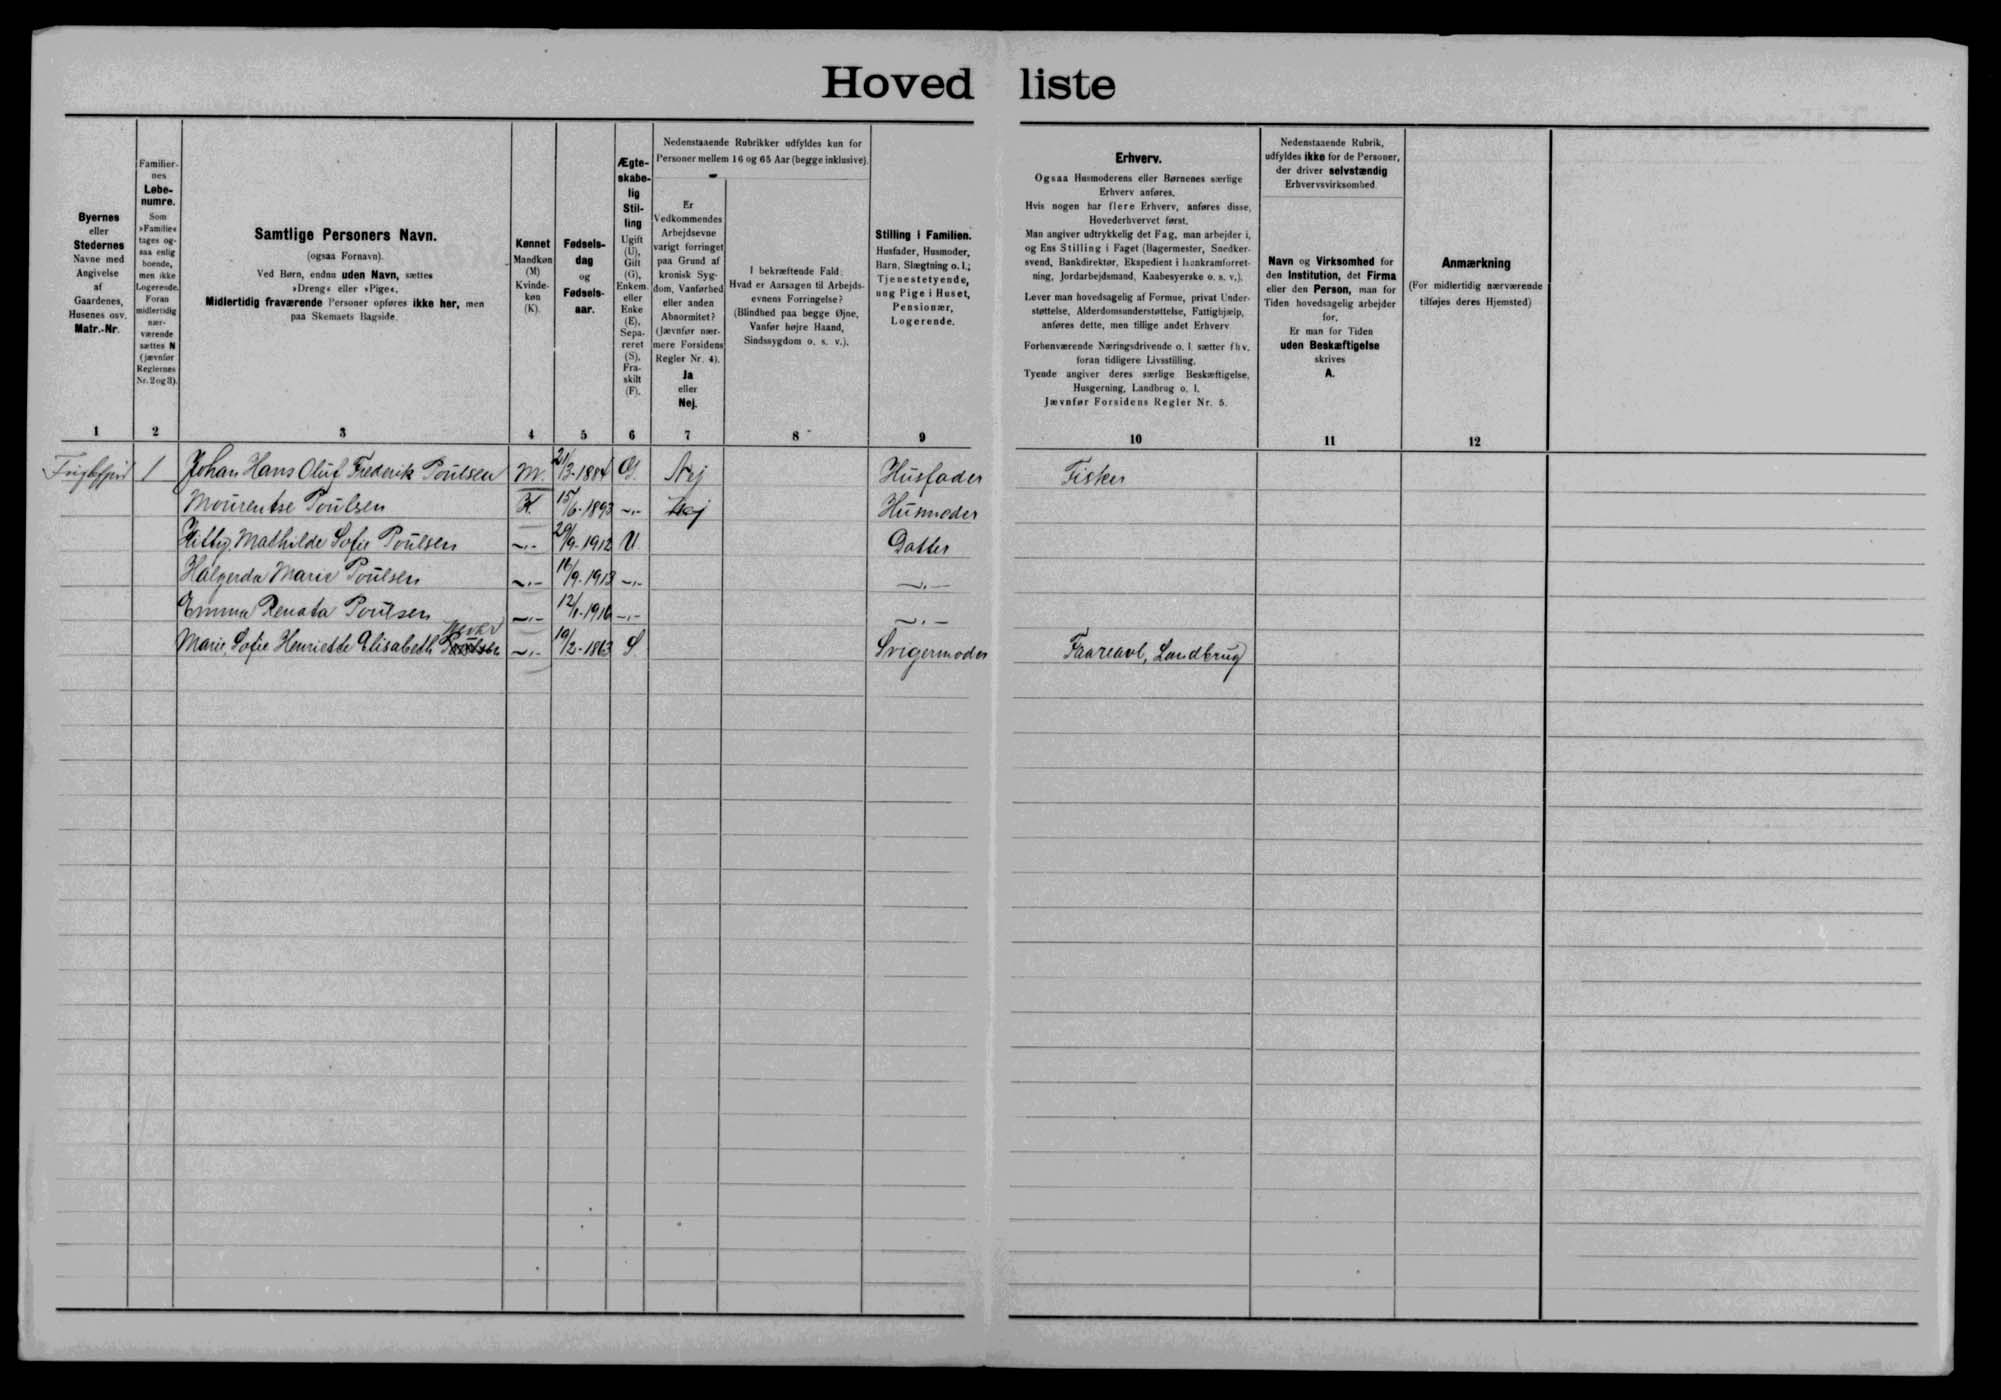 Hovedliste
Byernes
eller
Stedernes
Navne med
Angivelse
af
Gaardenes,
Husenes osv.
Matr.-Nr.
1
Familier-
nes
Løbe-
numre.
Som
»Familie«
tages og-
saa enlig
boende,
men ikke
Logerende.
Foran
midlertidig
nær-
værende
sættes N
(jævnfør
Reglernes
Nr. 2 og 3).
2
Samtlige Personers Navn.
(ogsaa Fornavn).
Ved Børn, endnu uden Navn, sættes
»Dreng« eller »Pige«.
Midlertidig fraværende Personer opføres ikke her, men
paa Skemaets Bagside.
3
Kønnet
Mandkøn
(M)
Kvinde-
køn
(K).
4
Fødsels-
dag
og
Fødsels-
aar.
5
Ægte-
skabe-
lig
Stil-
ling
Ugift
(U),
Gift
(G),
Enkem.
eller
Enke
(E),
Sepa-
reret
(S),
Fra-
skilt
(F).
6
Nedenstaaende Rubrikker udfyldes kun for
Personer mellem 16 og 65 Aar (begge inklusive).
Er
Vedkommendes
Arbejdsevne
varigt forringet
paa Grund af
kronisk Syg-
dom, Vanførhed
eller anden
Abnormitet?
(Jævnfør nær-
mere Forsidens
Regler Nr. 4).
Ja
eller
Nej.
7
I bekræftende Fald:
Hvad er Aarsagen til Arbejds-
evnens Forringelse?
(Blindhed paa begge Øjne,
Vanfør højre Haand,
Sindssygdom o. s. v.).
8
Stilling i Familien.
Husfader, Husmoder,
Barn, Slægtning o. l.;
Tjenestetyende,
ung Pige i Huset,
Pensionær,
Logerende.
9
Erhverv.
Ogsaa Husmoderens eller Børnenes særlige
Erhverv anføres.
Hvis nogen har flere Erhverv, anføres disse,
Hovederhvervet først.
Man angiver udtrykkelig det Fag, man arbejder i,
og Ens Stilling i Faget (Bagermester, Snedker-
svend, Bankdirektør, Ekspedient i Isenkramforret-
ning, Jordarbejdsmand, Kaabesyerske o. s. v.).
Lever man hovedsagelig af Formue, privat Under-
støttelse, Alderdomsunderstøttelse, Fattighjælp,
anføres dette, men tillige andet Erhverv.
Forhenværende Næringsdrivende o. l. sætter fhv.
foran tidligere Livsstilling.
Tyende angiver deres særlige Beskæftigelse,
Husgerning, Landbrug o. l.
Jævnfør Forsidens Regler Nr. 5.
10
Nedenstaaende Rubrik,
udfyldes ikke for de Personer,
der driver selvstændig
Erhvervsvirksomhed.
Navn og Virksomhed for
den Institution, det Firma
eller den Person, man for
Tiden hovedsagelig arbejder
for.
Er man for Tiden
uden Beskæftigelse
skrives
A.
11
Anmærkning
(For midlertidig nærværende
tilføjes deres Hjemsted)
12
1 Johan Hans Oluf Frederik Poulsen M. 21/3-1884 G. Nej Husfader Fisker
Mourentse Poulsen K. 15/6-1893 -"- Nej Husmoder
Kitty Mathilde Sofie Poulsen -"- 20/9-1912 U Datter
Halgerda Marie Poulsen -"- 16/9-1913 -"- -"-
Emma Renata Poulsen -"- 12/1-1916 -"- -"-
Marie, Sofie Henriette Elisabeth Poulsen -"- 19/2-1863 S Svigermoder Faareavl, Landbrug